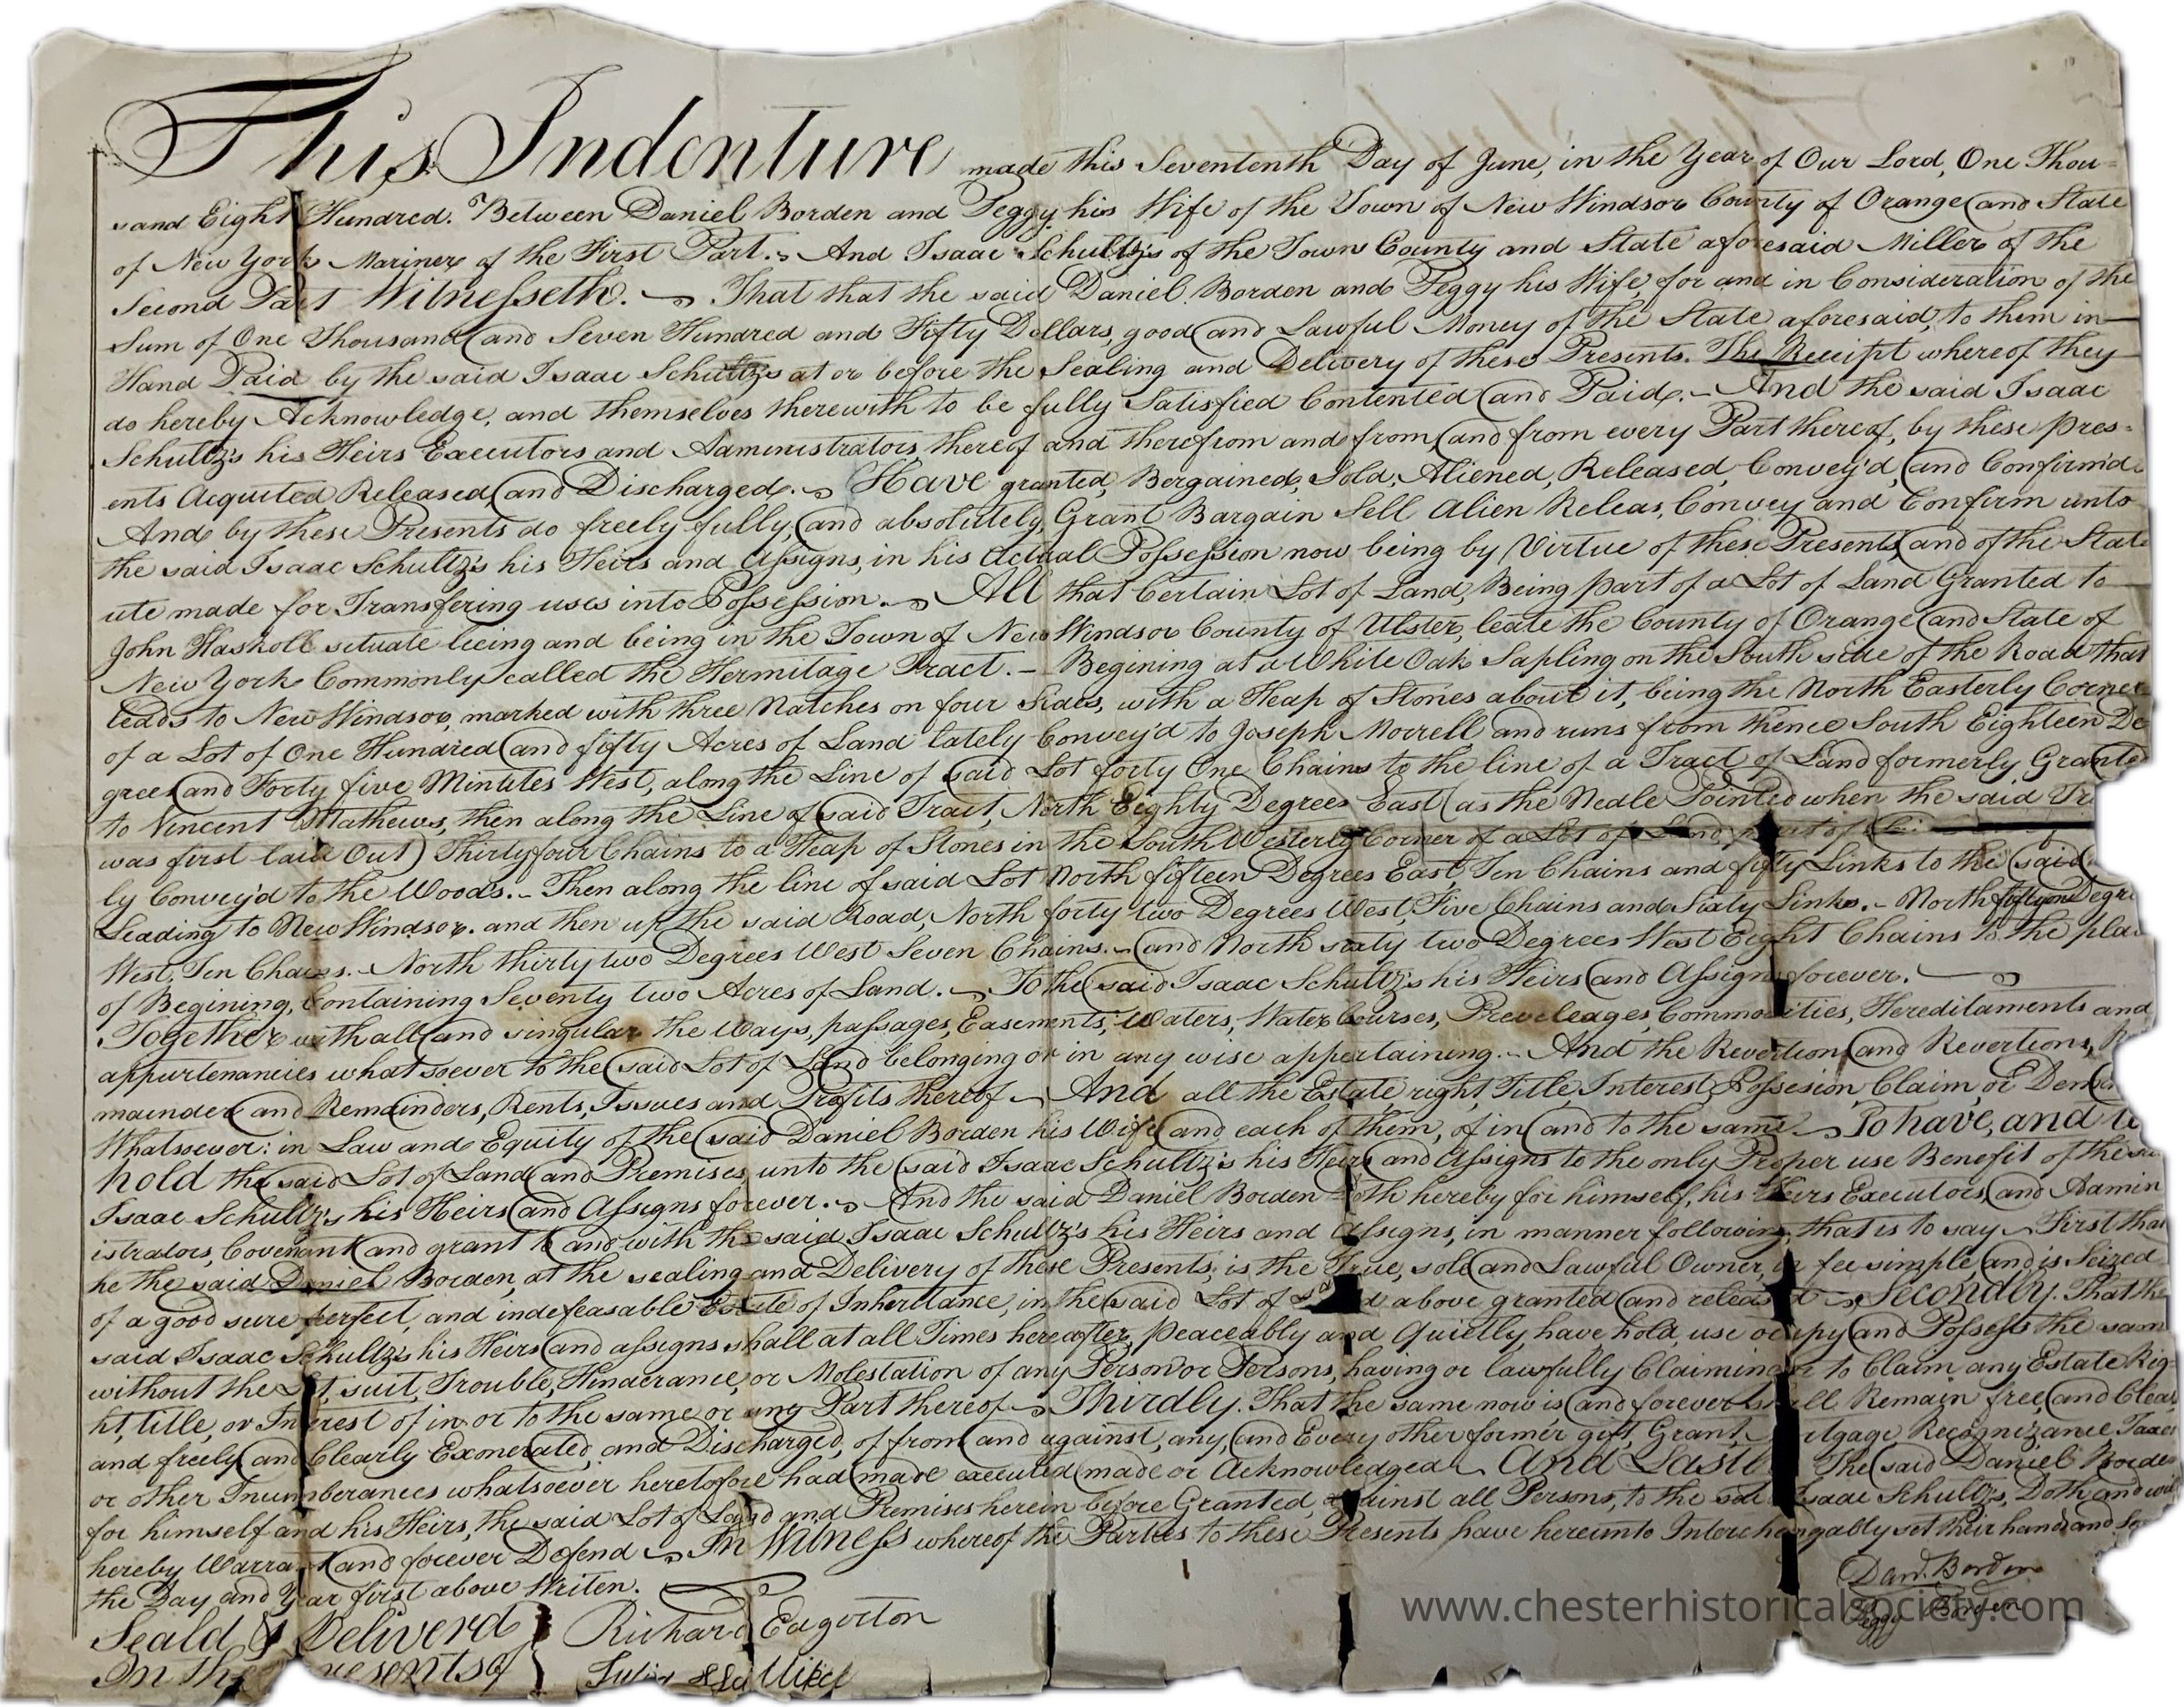 This Indenture made this Sevententh Day of June, in the Year of Our Lord, One Thou=
sand Eight Hundred. Between Daniel Borden and Peggy his Wife of the Town of New Windsor County of Orange and State
of New York Mariner of the First Part. And Isaac Schultz's of the Town County and State aforesaid Miller of the
Second Part Witnesseth. That that the said Daniel Borden and Peggy his Wife, for and in Consideration of the
Sum of One Thousand and Seven Hundred and Fifty Dollars, good and Lawful Money of the State aforesaid, to them in
Hand Paid by the said Isaac Schultz's at or before the Sealing and Delivery of these Presents. The Receipt whereof they
do hereby Acknowledge, and themselves therewith to be fully Satisfied Contented and Paid. And the said Isaac
Schultz's his Heirs Executors and Administrators, thereof and therefrom and from, and from every Part thereof, by these pres=
ents Acquited Released and Discharged. Have granted, Bergained, Sold, Aliened, Released, Convey'd, and Confirm'd.
And by these Presents do freely fully, and absolutely, Grant Bargain Sell Alien Releas, Convey and Confirm unto
the said Isaac Schultz's his Heirs and Assigns, in his Actual Possession now being by Virtue of these Presents, and of the Stat
ute made for Transfering uses into Possession. All that Certain Lot of Land, Being part of a Lot of Land Granted to
John Haskoll situate lieing and being in the Town of New Windsor County of Ulster, leate the County of Orange and State of
New York Commonly called the Hermitage Tract. Begining at a White Oak Sapling on the South side of the Road that
leads to New Windsor, marked with three Natches on four Sides, with a Heap of Stones about it, being the North Easterly Corner
of a Lot of One Hundred and fifty Acres of Land lately Convey'd to Joseph Morrell and runs from thence South Eighteen De
grees and Forty five Minutes West, along the Line of said Lot forty One Chains to the line of a Tract of Land formerly Grante
to Vincent Mathews, then along the Line of said Tract, North Eighty Degrees East (as the Nedle Pointed when the said Tr
was first laid Out) Thirty four Chains to a Heap of Stones in the South Westerly Corner of a Lot of Land part of
ly Convey'd to the Woods. Then along the line of said Lot North fifteen Degrees East, Ten Chains and fifty Links to the said
Leading to New Windsor. and then up the said Road, North forty two Degrees West, Five Chains and Sixty Links. North fifty one Degr
West, Ten Chains. North thirty two Degrees West Seven Chains. and North sixty two Degrees West Eight Chains to the pla
of Begining, Containing Seventy two Acres of Land. To the said Isaac Schultz's his Heirs and Assigns forever.
Together with all and singular the Ways, passages, Easements, Waters, Water Courses, Preveleages, Commodities, Hereditaments and
appurtenancies whatsoever to the said Lot of Land belonging or in any wise appertaining. And the Revertion and Revertions, R
mainder and Remainders, Rents, Issues and Profits thereof And all the Estate right, Title, Interest, Possesion, Claim, or Dem
Whatsoever: in Law and Equity of the said Daniel Borden his Wife and each of them, of in and to the same To have, and to
hold the said Lot of Land and Premises, unto the said Isaac Schultz's his Heirs and Assigns to the only Proper use Benefit of the
Isaac Schultz's his Heirs and Assigns forever. And the said Daniel Borden doth hereby for himself, his Heirs Executors and Admin
istrators, Covenant and grant to and with the said Isaac Schultz's his Heirs and Assigns, in manner following, that is to say First that
he the said Daniel Borden, at the sealing and Delivery of these Presents, is the True, sole and Lawful Owner, in fee simple, and is Seized
of a good sure perfect, and indefeasable Estate of Inheritance, in the said Lot of Land above granted and released Secondly. That the
said Isaac Schultz's his Heirs and assigns shall at all Times hereafter, peaceably and Quietly, have hold, use occupy and Possess the sam
without the Let, suit, Trouble, Hinderance, or Molestation of any Person or Persons, having or lawfully Claiming or to Claim any Estate Rig
ht, title, or Interest of in or to the same or any Part thereof Thirdly. That the same now is and forever shall Remain free and Clear
and freely and Clearly Exonerated, and Discharged, of from and against, any and Every other former gift, Grant, Mortgage Recognizance Taxes
or other Inumberances whatsoever heretofore had made executed made or Acknowledged And Lastly The said Daniel Borden
for himself and his Heirs, the said Lot of Land and Premises herein before Granted, against all Persons, to the said Isaac Schultz's, Doth and will
hereby Warrant and forever Defend In Witness whereof the Parties to these Presents have hereunto Interchangably set their hands and
the Day and Year first above Writen.
Seald & Deliverd
In the presents of
Richard Edgerton
Danl. Borden
Peggy Borden
www.chesterhistoricalsociety.com